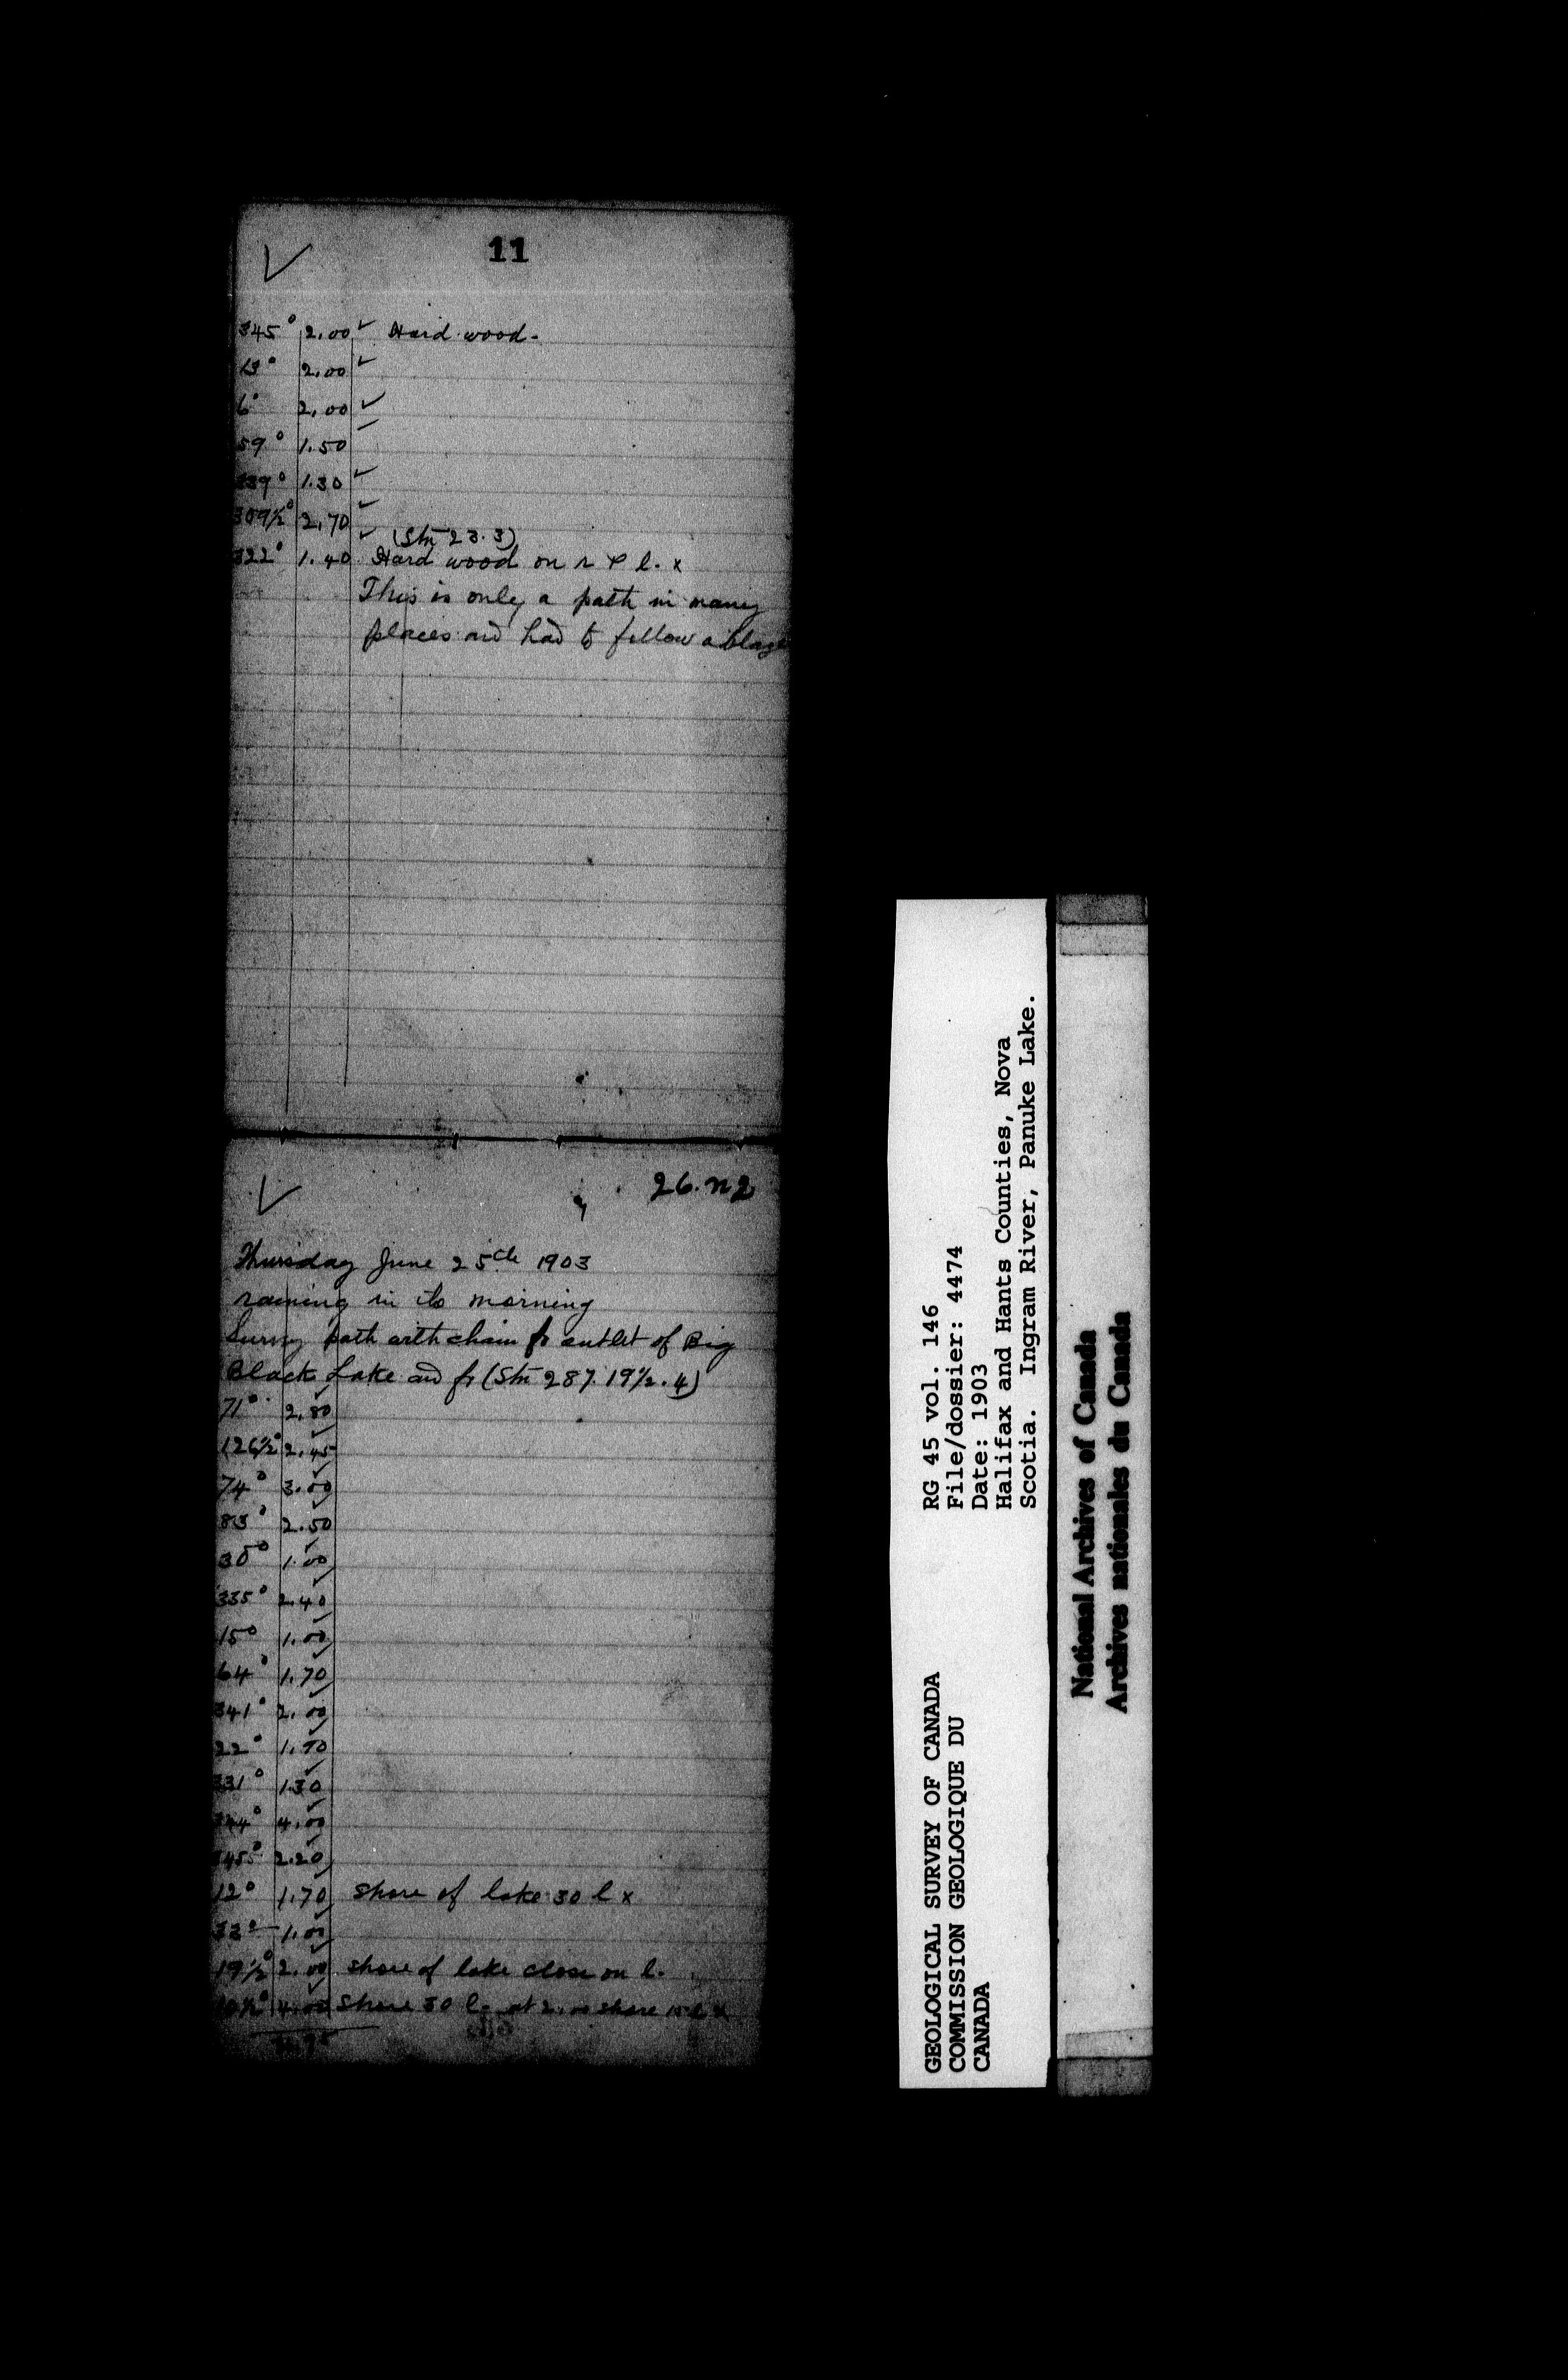 11
345° 2.00 ✓ Hard wood-
13° 2.00 ✓
6° 2.00 ✓
59° 1.50 ✓
339° 1.30 ✓
309½° 2.70 ✓
(Stn 23.3)
322° 1.40 ✓ Hard wood on r & l. x
This is only a path in many
places and had to follow a blaze
26.n2
Thursday June 25th 1903
raining in the morning
Survey path with chain fr outlet of Big
Black Lake and fr (Stn 287.19½.4)
71° 2.80 ✓
126½° 2.45 ✓
74° 3.00 ✓
83° 2.50 ✓
30° 1.00 ✓
335° 2.40 ✓
15° 1.00 ✓
64° 1.70 ✓
341° 2.00 ✓
22° 1.90 ✓
331° 1.30 ✓
4.00 ✓
2.20 ✓
12° 1.70 ✓ Shore of lake 30 l x
33° 1.00 ✓
19½° 2.00 ✓ Shore of lake close on l.
4.00 ✓ Shore 30 l. at 2.00 shore 15 l x
GEOLOGICAL SURVEY OF CANADA
COMMISSION GEOLOGIQUE DU
CANADA
RG 45 vol. 146
File/dossier: 4474
Date: 1903
Halifax and Hants Counties, Nova
Scotia. Ingram River, Panuke Lake.
National Archives of Canada
Archives nationales du Canada